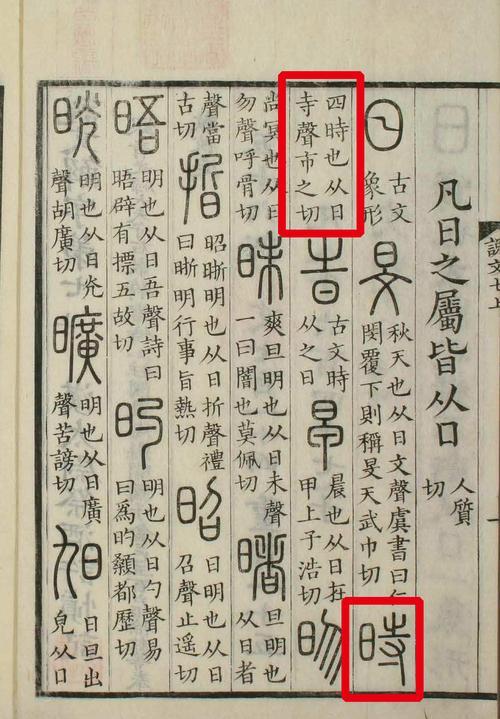 說文七上
凡日之屬皆从日人質切
日古文象形旻秋天也从日文聲虞書曰仁閔覆下則稱旻天武巾切時
四時也从日寺聲市之切旹古文時从之日早晨也从日在甲上子浩切昒
尚冥也从日勿聲呼骨切昧爽旦明也从日未聲一曰闇也莫佩切睹旦明也从日者
聲當古切晢昭晣明也从日折聲禮曰晣明行事旨熱切昭日明也从日召聲止遙切
晤明也从日吾聲詩曰晤辟有摽五故切旳明也从日勺聲易曰爲旳顙都歷切
晄明也从日光聲胡廣切曠明也从日廣聲苦謗切旭日旦出皃从日